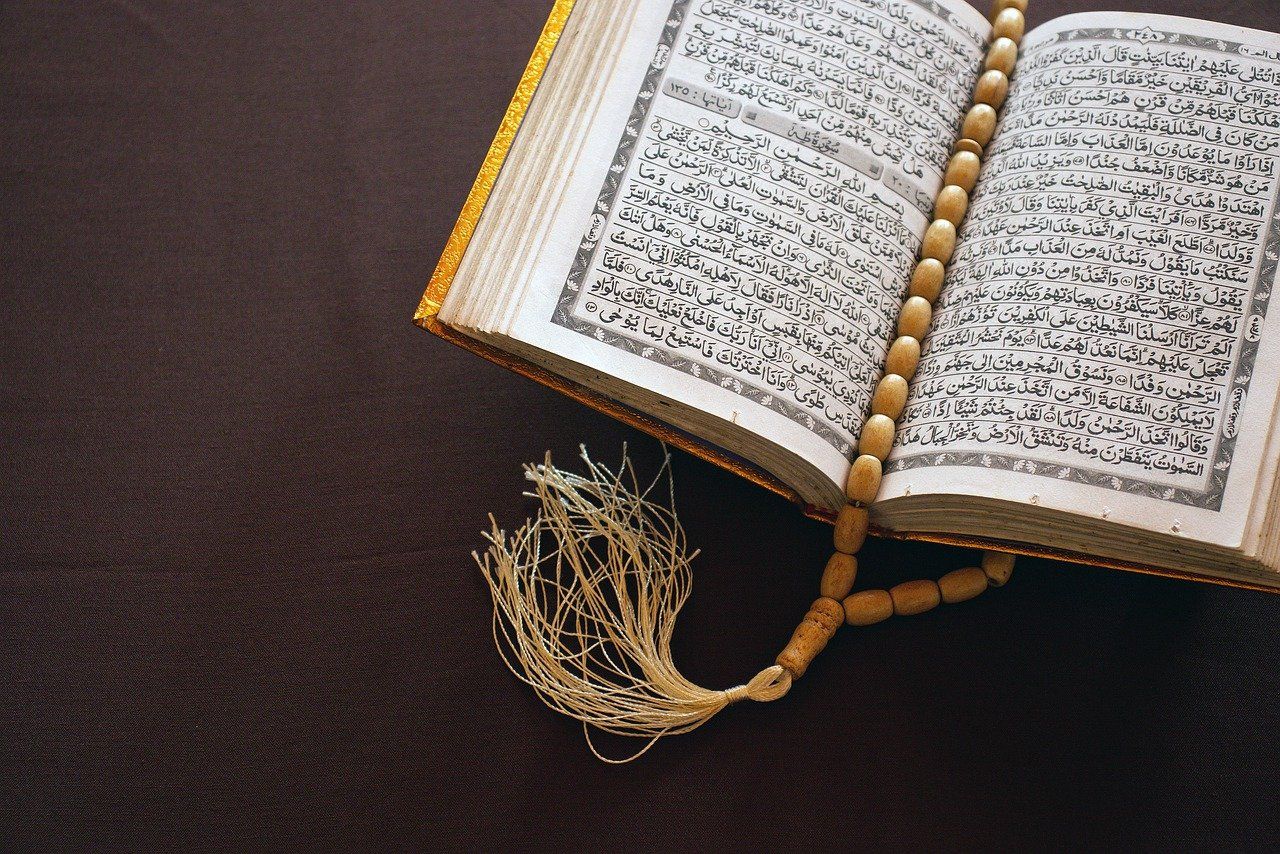 ٢٤٨
تُتْلٰى عَلَيْهِمْ اٰيٰتُنَا بَيِّنٰتٍ قَالَ الَّذِيْنَ كَفَرُوْا
اَيُّ الْفَرِيْقَيْنِ خَيْرٌ مَّقَامًا وَّاَحْسَنُ نَدِيًّا
قَبْلَهُمْ مِّنْ قَرْنٍ هُمْ اَحْسَنُ اَثَاثًا
مَنْ كَانَ فِى الضَّلٰلَةِ فَلْيَمْدُدْ لَهُ الرَّحْمٰنُ مَدًّا
اِذَا رَاَوْا مَا يُوْعَدُوْنَ اِمَّا الْعَذَابَ وَاِمَّا السَّاعَةَ
مَنْ هُوَ شَرٌّ مَّكَانًا وَّاَضْعَفُ جُنْدًا وَيَزِيْدُ اللّٰهُ
اهْتَدَوْا هُدًى وَالْبٰقِيٰتُ الصّٰلِحٰتُ خَيْرٌ عِنْدَ رَبِّكَ
وَّخَيْرٌ مَّرَدًّا اَفَرَءَيْتَ الَّذِيْ كَفَرَ بِاٰيٰتِنَا وَقَالَ لَاُوْتَيَنَّ
وَّوَلَدًا اَطَّلَعَ الْغَيْبَ اَمِ اتَّخَذَ عِنْدَ الرَّحْمٰنِ عَهْدًا
سَنَكْتُبُ مَا يَقُوْلُ وَنَمُدُّ لَهٗ مِنَ الْعَذَابِ مَدًّا
يَقُوْلُ وَيَأْتِيْنَا فَرْدًا وَاتَّخَذُوْا مِنْ دُوْنِ اللّٰهِ اٰلِهَةً
لَهُمْ عِزًّا كَلَّا سَيَكْفُرُوْنَ بِعِبَادَتِهِمْ وَيَكُوْنُوْنَ عَلَيْهِمْ
اَلَمْ تَرَ اَنَّآ اَرْسَلْنَا الشَّيٰطِيْنَ عَلَى الْكٰفِرِيْنَ تَؤُزُّهُمْ اَزًّا
تَعْجَلْ عَلَيْهِمْ اِنَّمَا نَعُدُّ لَهُمْ عَدًّا يَوْمَ نَحْشُرُ الْمُتَّقِيْنَ
الرَّحْمٰنِ وَفْدًا وَنَسُوْقُ الْمُجْرِمِيْنَ اِلٰى جَهَنَّمَ وِرْدًا
لَا يَمْلِكُوْنَ الشَّفَاعَةَ اِلَّا مَنِ اتَّخَذَ عِنْدَ الرَّحْمٰنِ عَهْدًا
وَقَالُوا اتَّخَذَ الرَّحْمٰنُ وَلَدًا لَقَدْ جِئْتُمْ شَيْئًا اِدًّا تَكَادُ
السَّمٰوٰتُ يَتَفَطَّرْنَ مِنْهُ وَتَنْشَقُّ الْاَرْضُ وَتَخِرُّ الْجِبَالُ هَدًّا
الرَّحْمٰنِ وَلَدًا
كُلُّ مَنْ فِى السَّمٰوٰتِ وَالْاَرْضِ
لَقَدْ اَحْصٰىهُمْ وَعَدَّهُمْ عَدًّا وَكُلُّهُمْ
فَرْدًا اِنَّ الَّذِيْنَ اٰمَنُوْا وَعَمِلُوا الصّٰلِحٰتِ سَيَجْعَلُ
الرَّحْمٰنُ وُدًّا فَاِنَّمَا يَسَّرْنٰهُ بِلِسَانِكَ لِتُبَشِّرَ بِهِ
وَتُنْذِرَ بِهٖ قَوْمًا لُّدًّا وَكَمْ اَهْلَكْنَا قَبْلَهُمْ مِّنْ قَرْنٍ
هَلْ تُحِسُّ مِنْهُمْ مِّنْ اَحَدٍ اَوْ تَسْمَعُ لَهُمْ رِكْزًا
سُوْرَةُ طٰهٰ
اٰيَاتُهَا : ١٣٥
بِسْمِ اللّٰهِ الرَّحْمٰنِ الرَّحِيْمِ
اَنْزَلْنَا عَلَيْكَ الْقُرْاٰنَ لِتَشْقٰى اِلَّا تَذْكِرَةً لِّمَنْ يَّخْشٰى
مِّمَّنْ خَلَقَ الْاَرْضَ وَالسَّمٰوٰتِ الْعُلٰى اَلرَّحْمٰنُ عَلَى
اسْتَوٰى لَهٗ مَا فِى السَّمٰوٰتِ وَمَا فِى الْاَرْضِ وَمَا
وَمَا تَحْتَ الثَّرٰى وَاِنْ تَجْهَرْ بِالْقَوْلِ فَاِنَّهٗ يَعْلَمُ السِّرَّ
اَللّٰهُ لَآ اِلٰهَ اِلَّا هُوَ لَهُ الْاَسْمَآءُ الْحُسْنٰى وَهَلْ اَتٰىكَ
مُوْسٰى اِذْ رَاٰ نَارًا فَقَالَ لِاَهْلِهِ امْكُثُوْٓا اِنِّيْٓ اٰنَسْتُ
اٰتِيْكُمْ مِّنْهَا بِقَبَسٍ اَوْ اَجِدُ عَلَى النَّارِ هُدًى فَلَمَّآ
نُوْدِيَ يٰمُوْسٰى اِنِّيْٓ اَنَا رَبُّكَ فَاخْلَعْ نَعْلَيْكَ اِنَّكَ بِالْوَادِ
الْمُقَدَّسِ طُوًى وَاَنَا اخْتَرْتُكَ فَاسْتَمِعْ لِمَا يُوْحٰى